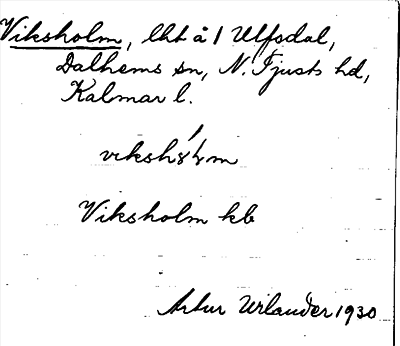 Viksholm, lht å 1 Ulfsdal,
Dalhems sn, N. Tjusts hd,
Kalmar l.
Viksholm kb
Artur 1930